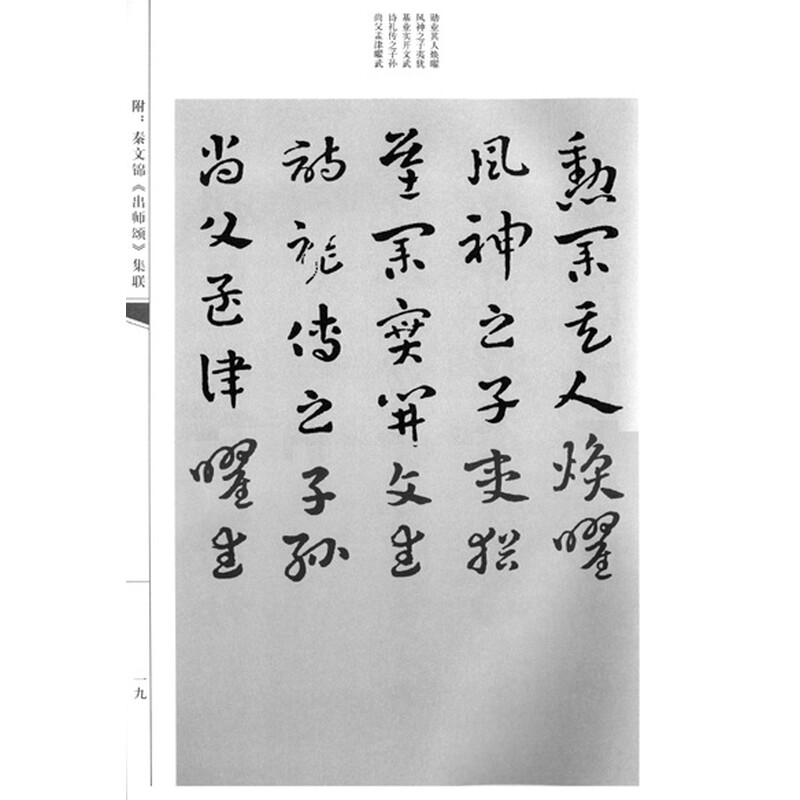 勋业其人焕曜
风神之子夷犹
基业实开文武
诗礼传之子孙
尚父孟津曜武
勲業其人焕曜
風神之子夷猶
基業實開文武
詩禮傳之子孫
尚父孟津曜武
附：秦文锦《出师颂》集联
一九